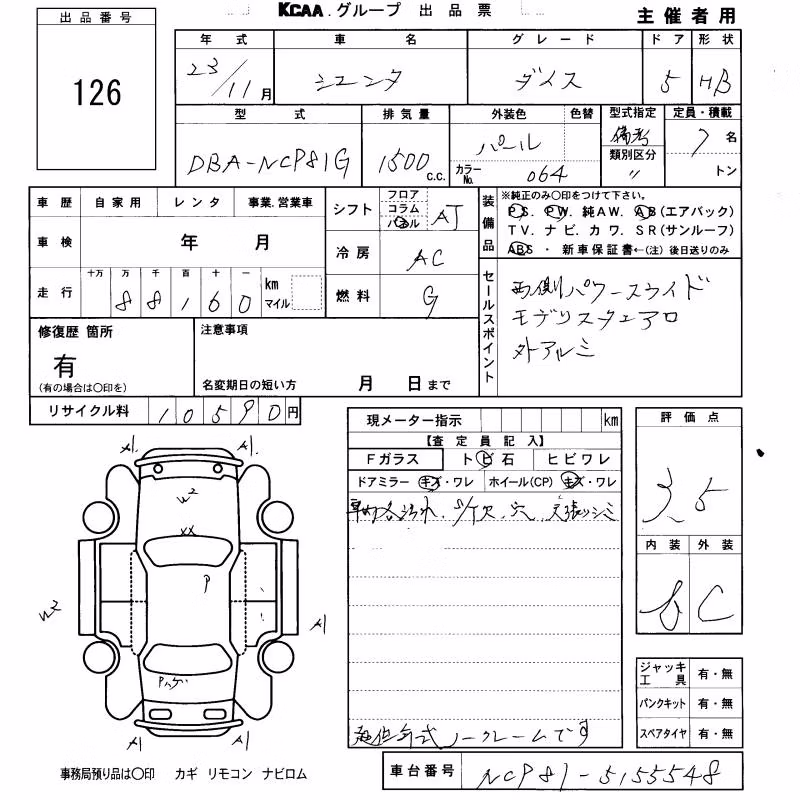 KCAA.グループ 出品票 主催者用
出品番号 年式 車名 グレード ドア 形状
126 23/11月 シエンタ ダイス 5 HB
型式 排気量 外装色 色替 型式指定 定員・積載
DBA-NCP81G 1500 c.c. パール 備考 7名
カラーNo. 064 類別区分 〃 トン
車歴 自家用 レンタ 事業.営業車 シフト フロア コラム パネル AT
装備品 ※純正のみ〇印をつけて下さい。
PS. PW. 純AW. AB(エアバック)
TV. ナビ. カワ. SR(サンルーフ)
ABS ・ 新車保証書←(注) 後日送りのみ
車検 年 月 冷房 AC
走行 十万 万 千 百 十 一 km マイル
88160 燃料 G
セールスポイント 両側パワースライド
モデリスタエアロ
外アルミ
修復歴 箇所 注意事項
有
(有の場合は〇印を) 名変期日の短い方 月 日まで
リサイクル料 10590円
現メーター指示 km 評価点
【査定員記入】
Fガラス トビ石 ヒビワレ
ドアミラー キズ・ワレ ホイール(CP) キズ・ワレ
車内各汚れ、 欠、穴、天張シミ
3.5
内装 外装
C
A1. A1.
W2
XX
P
W2 A1
ジャッキ工具 有・無
パンクキット 有・無
スペアタイヤ 有・無
ノークレームです
事務局預り品は〇印 カギ リモコン ナビロム
車台番号 NCP81-5155548